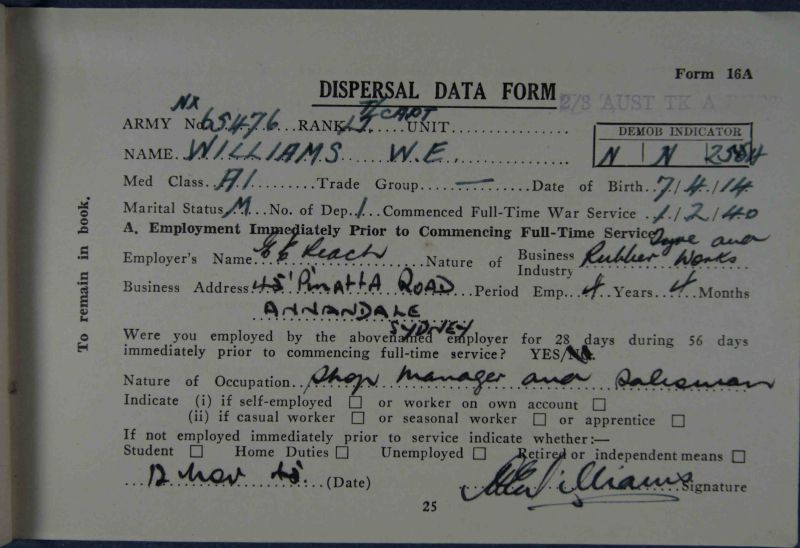 Form 16A
DISPERSAL DATA FORM
2/3 AUST TK
NX T/CAPT
ARMY No. 65476 RANK LT. UNIT
DEMOB INDICATOR
NAME. WILLIAMS W.E.
N | N
Med Class. A1 Trade Group — Date of Birth 7/4/14
Marital Status M No. of Dep. 1 Commenced Full-Time War Service 1/2/40
A. Employment Immediately Prior to Commencing Full-Time Service
Employer's Name Nature of Business Industry Tyre and Rubber Works
Business Address ROAD Period Emp. 4 Years 4 Months
ANNANDALE
SYDNEY
Were you employed by the abovenamed employer for 28 days during 56 days
immediately prior to commencing full-time service? YES/NO.
Nature of Occupation Shop Manager and Salesman
Indicate (i) if self-employed □ or worker on own account □
(ii) if casual worker □ or seasonal worker □ or apprentice □
If not employed immediately prior to service indicate whether:—
Student □ Home Duties □ Unemployed □ Retired or independent means □
12 Nov 45 (Date) WEWilliams Signature
25
To remain in book.